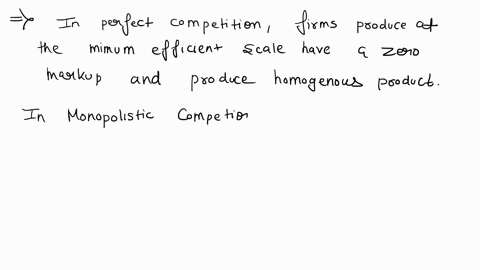 => In perfect competition, firms produce at
the minum efficient scale have a zero
markup and produce homogenous product.
In Monopolistic Competion